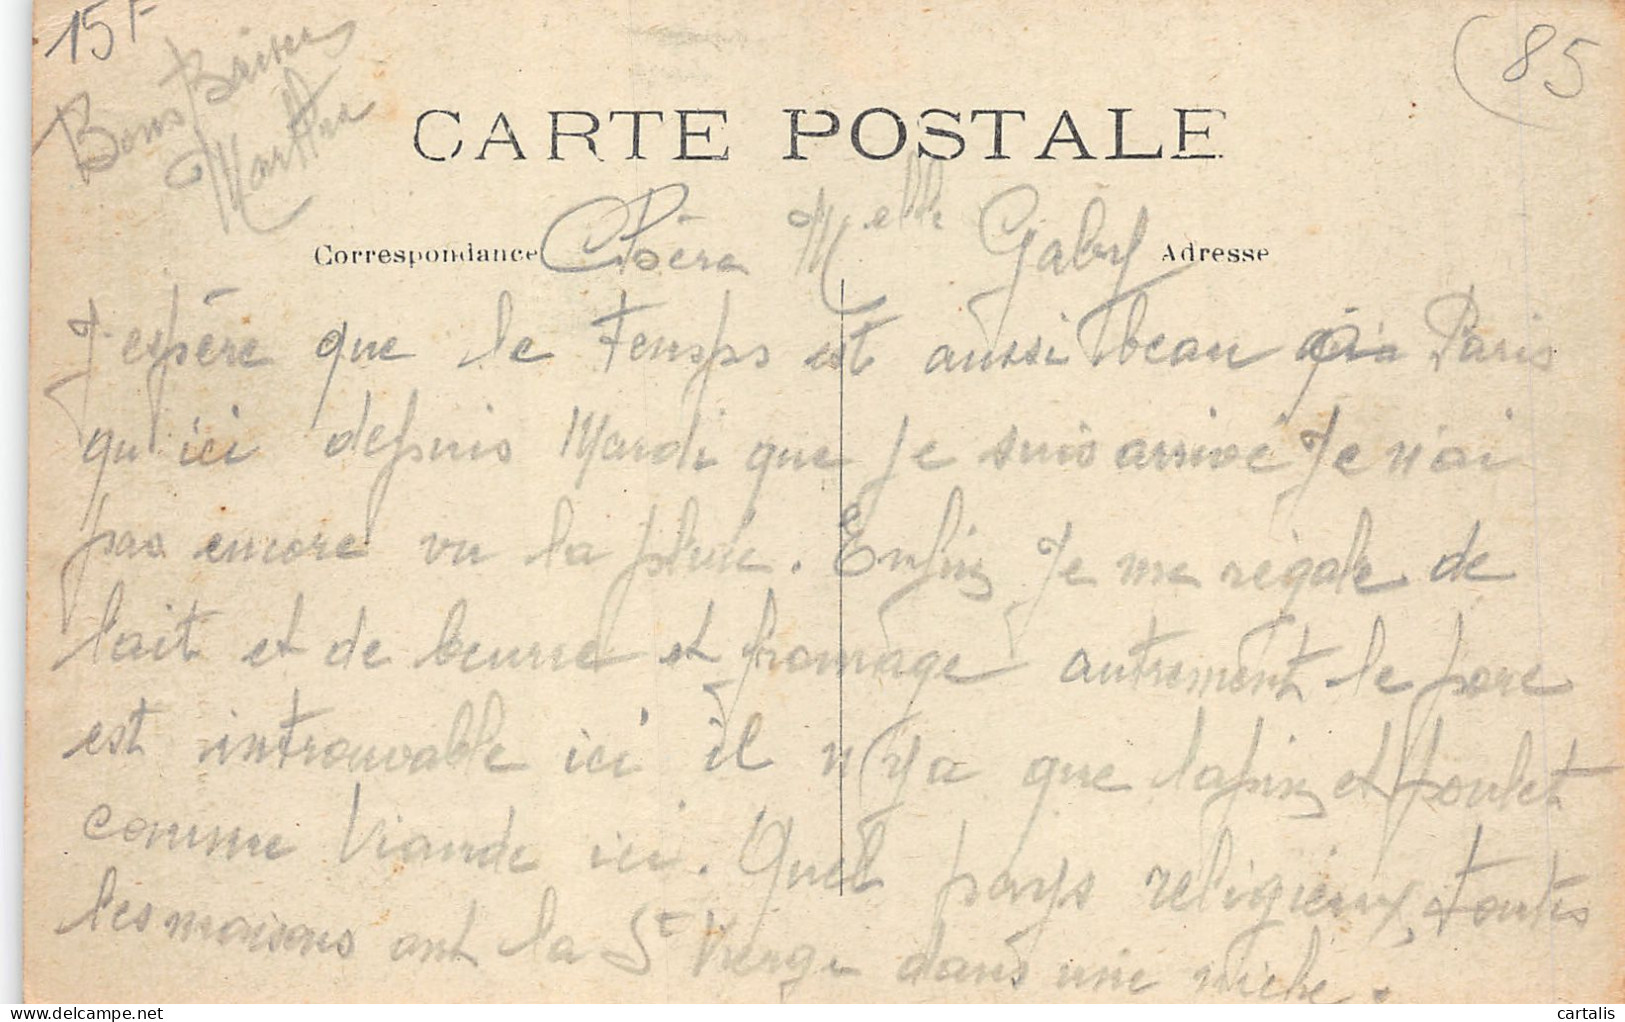 15F
(85
Bons Baisers
Marthe
CARTE POSTALE
Correspondance
Adresse
Chère Melle Gaby
J'espère que le temps est aussi beau à Paris
qu'ici depuis Mardi que je suis arrivé Je n'ai
pas encore vu la pluie. Enfin Je me régale de
lait et de beurre et fromage autrement le porc
est introuvable ici il n'ya que lapin et poulet
comme Viande ici. Quel pays religieux, toutes
les maisons ont la St Vierge dans une niche.
delcampe.net
cartalis